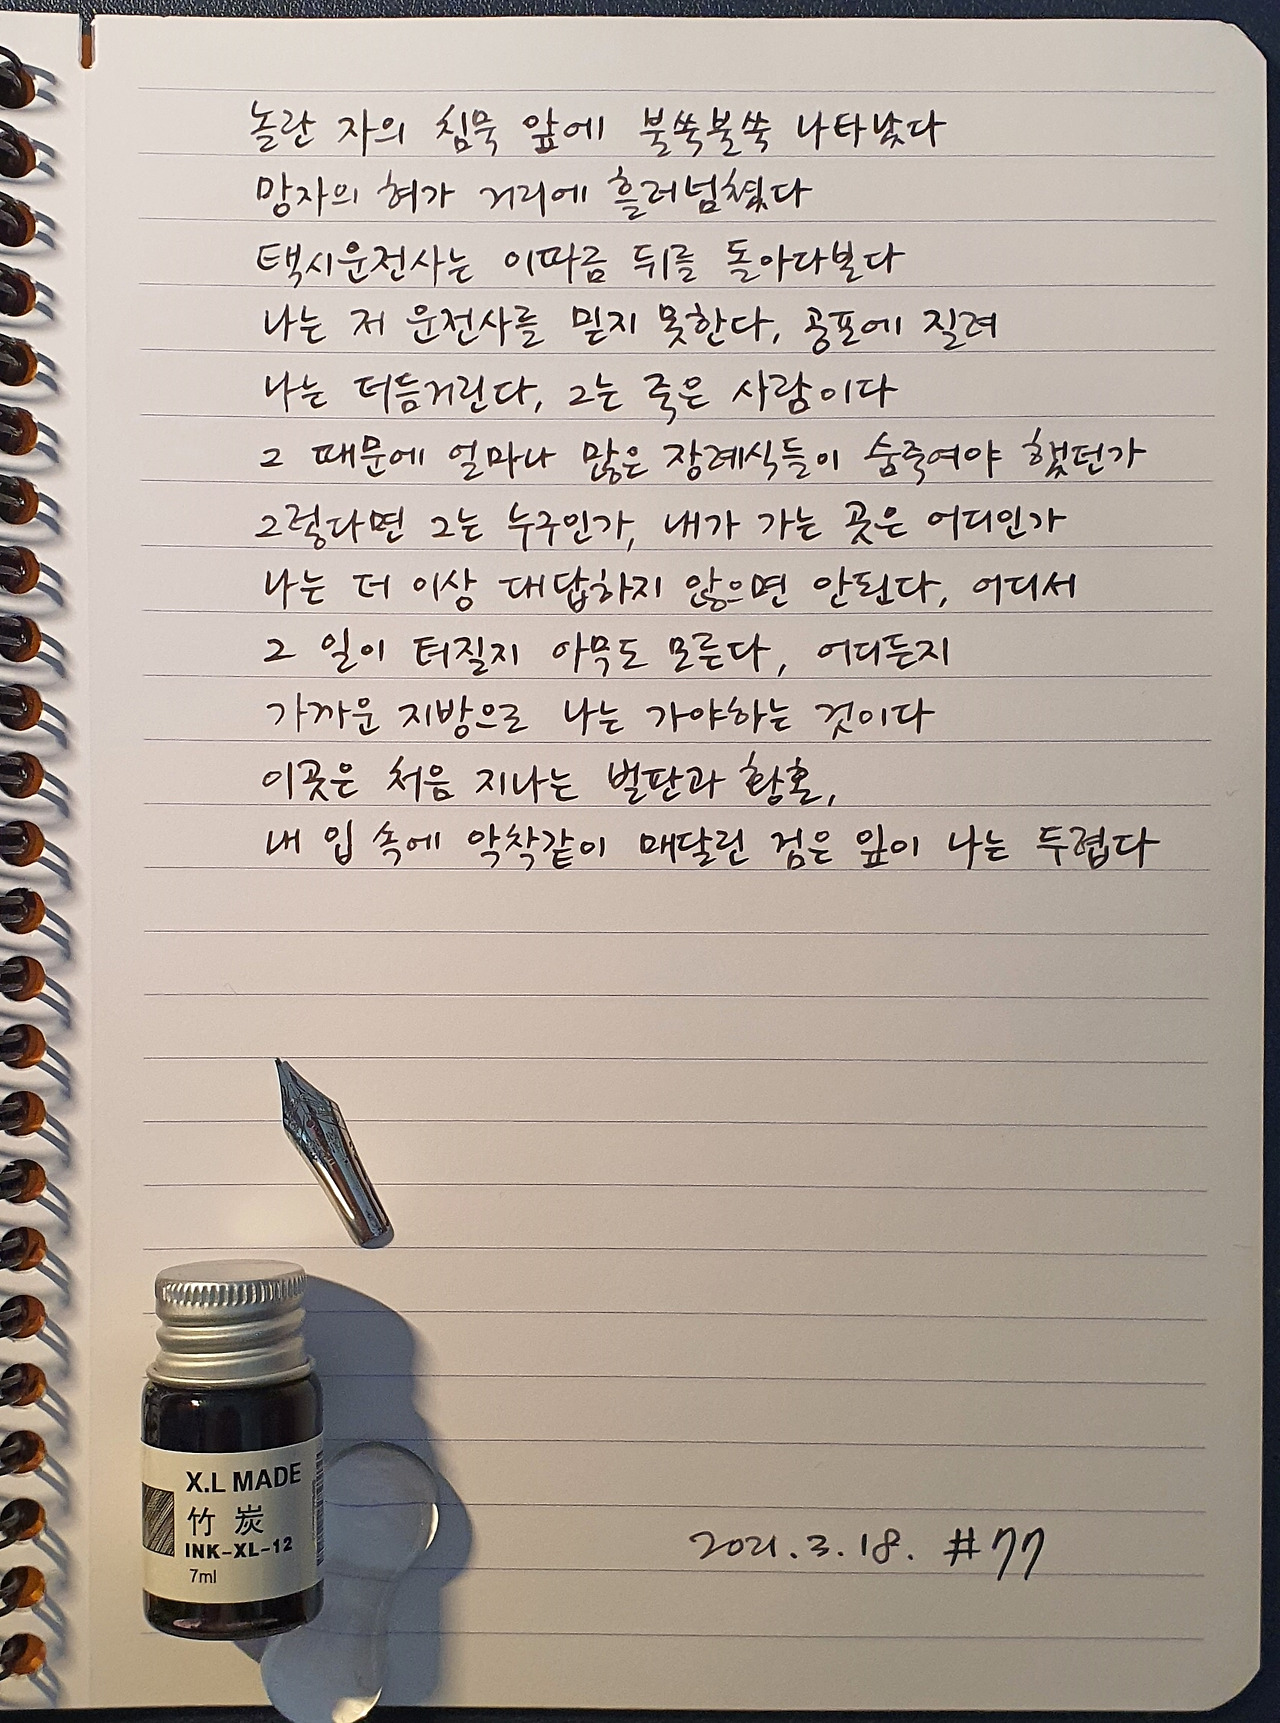 놀란 자의 침묵 앞에 불쑥불쑥 나타났다
망자의 혀가 거리에 흘러넘쳤다
택시운전사는 이따금 뒤를 돌아다본다
나는 저 운전사를 믿지 못한다, 공포에 질려
나는 더듬거린다, 그는 죽은 사람이다
그 때문에 얼마나 많은 장례식들이 숨죽여야 했던가
그렇다면 그는 누구인가, 내가 가는 곳은 어디인가
나는 더 이상 대답하지 않으면 안된다, 어디서
그 일이 터질지 아무도 모른다, 어디든지
가까운 지방으로 나는 가야하는 것이다
이곳은 처음 지나는 벌판과 황혼,
내 입 속에 악착같이 매달린 검은 잎이 나는 두렵다
X.L MADE
竹炭
INK-XL-12
7ml
2021.3.18. #77